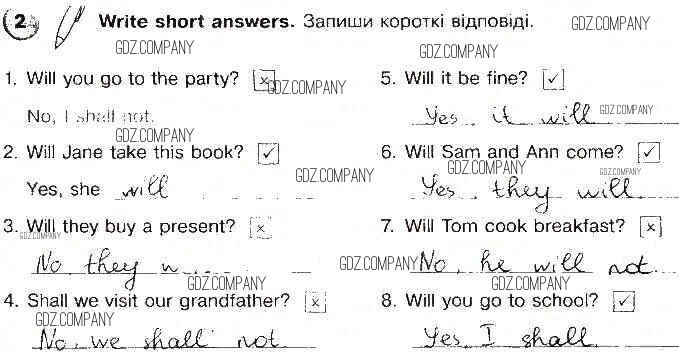 2 Write short answers. Запиши короткі відповіді.
GDZ.COMPANY
GDZ.COMPANY
GDZ.COMPANY
1. Will you go to the party? x
GDZ.COMPANY
No, I shall not.
GDZ.COMPANY
2. Will Jane take this book? ✓
GDZ.COMPANY
Yes, she will
3. Will they buy a present? x
GDZ.COMPANY
No they w
GDZ.COMPANY
4. Shall we visit our grandfather? x
GDZ.COMPANY
No, we shall not
5. Will it be fine? ✓
Yes it will
GDZ.COMPANY
6. Will Sam and Ann come? ✓
GDZ.COMPANY
GDZ.COMPANY
Yes. they will.
7. Will Tom cook breakfast? x
GDZ.COMPANY
No, he will not.
GDZ.COMPANY
8. Will you go to school? ✓
Yes, I shall.
GDZ.COMPANY